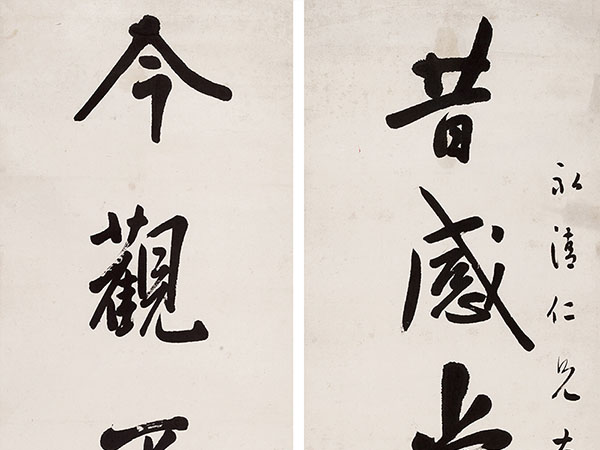 永清仁兄大
昔感
今觀